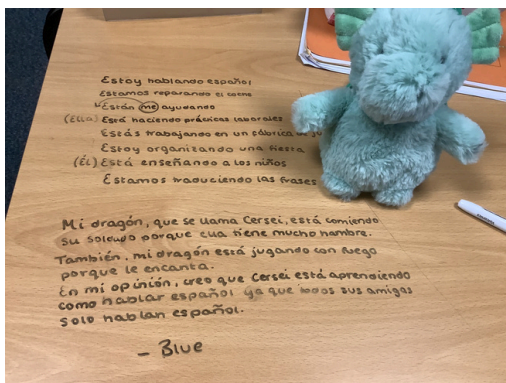 Estoy hablando español
Estamos reparando el coche
Están me ayudando
(Ella) Está haciendo prácticas laborales
Estás trabajando en un fábrica de ju
Estoy organizando una fiesta
(Él) Está enseñando a los niños
Estamos traduciendo las frases
Mi dragón, que se llama Cersei, está comiendo
su soldado porque ella tiene mucho hambre.
También, mi dragón está jugando con fuego
porque le encanta.
En mi opinión, creo que Cersei está aprendiendo
como hablar español ya que todos sus amigas
solo hablan español.
- Blue